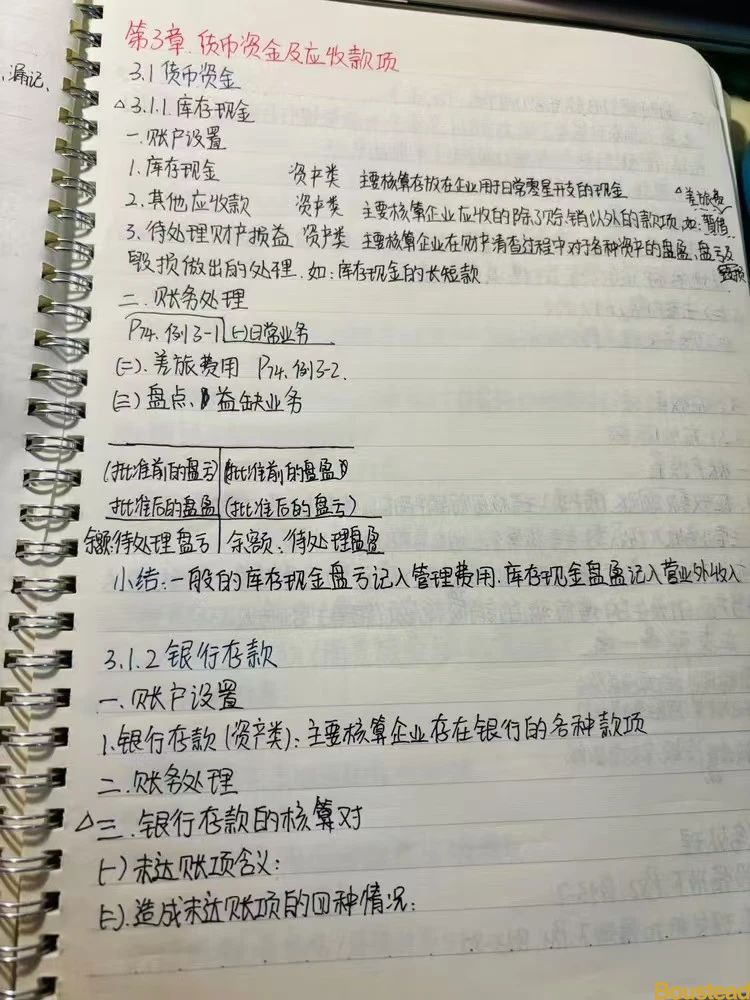 漏记、
第3章.货币资金及应收款项
3.1 货币资金
△3.1.1.库存现金
一.账户设置
1.库存现金 资产类 主要核算存放在企业用于日常零星开支的现金
△差旅费
2.其他应收款 资产类 主要核算企业应收的除了赊销以外的款项.如:暂借
3.待处理财产损益 资产类 主要核算企业在财产清查过程中对于各种资产的盘盈、盘亏及毁损
毁损做出的处理.如:库存现金的长短款
二.账务处理
P74.例3-1 (一)日常业务
(二).差旅费用 P74.例3-2.
(三)盘点、益缺业务
(批准前的盘亏) (批准前的盘盈)
批准后的盘盈 (批准后的盘亏)
余额:待处理盘亏 余额:待处理盘盈
小结:一般的库存现金盘亏记入管理费用.库存现金盘盈记入营业外收入
3.1.2 银行存款
一.账户设置
1.银行存款(资产类):主要核算企业存在银行的各种款项
二.账务处理
△三.银行存款的核算对
(一)未达账项含义:
(二).造成未达账项的四种情况:
Boustead